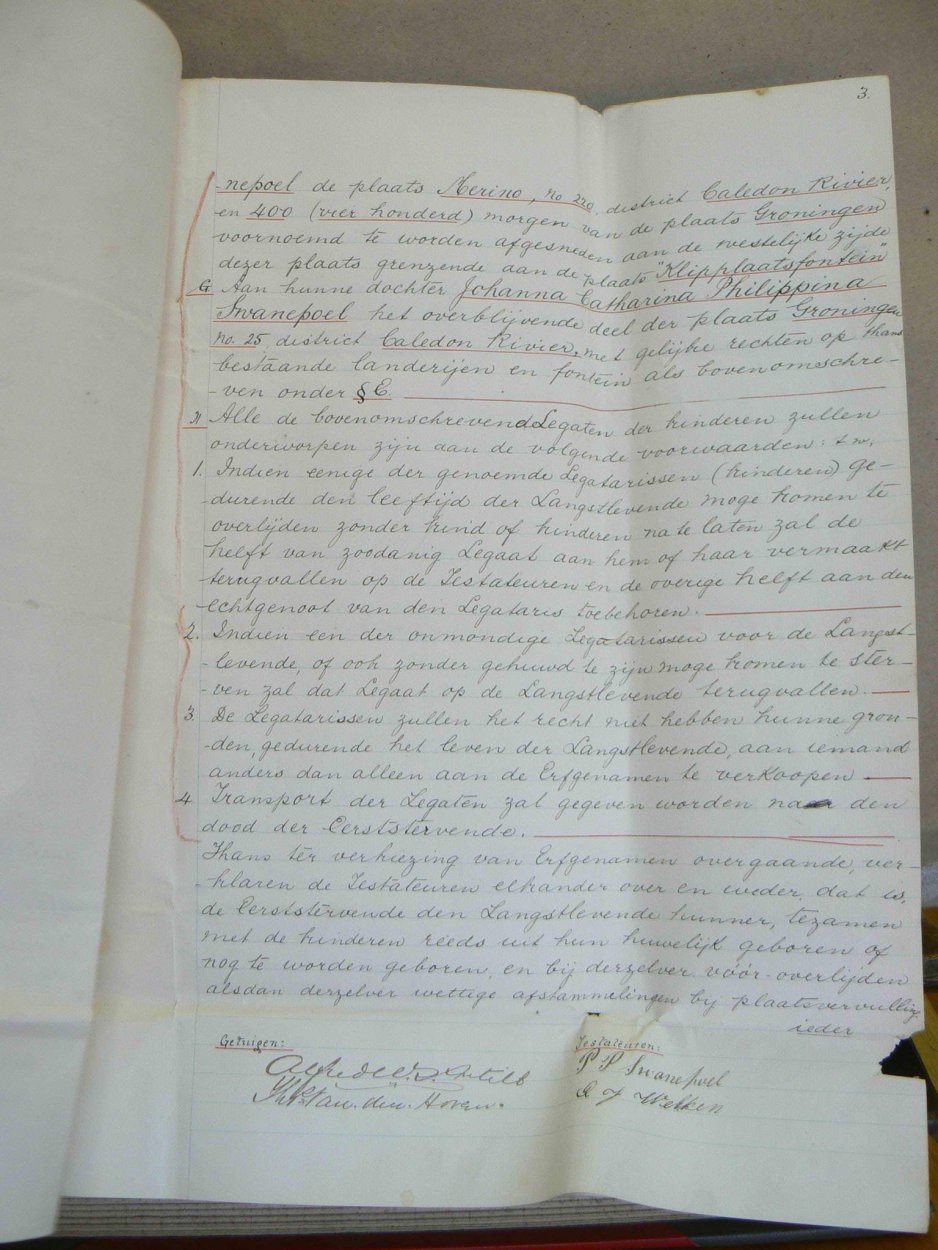 3.
-nepoel de plaats Merino, no 220, district Caledon Rivier,
en 400 (vier honderd) morgen van de plaats Groningen
voornoemd te worden afgesneden aan de westelijke zijde
dezer plaats grenzende aan de plaats "Klipplaatsfontein"
G. Aan hunne dochter Johanna Catharina Philippina
Swanepoel het overblijvende deel der plaats Groningen
No. 25, district Caledon Rivier, met gelijke rechten op thans
bestaande landerijen en fontein als bovenomschre-
-ven onder § E.
H Alle de bovenomschrevend Legaten der kinderen zullen
onderworpen zijn aan de volgende voorwaarden: t.w.
1. Indien eenige der genoemde Legatarissen (kinderen) ge-
-durende den leeftijd der Langstlevende moge komen te
overlijden zonder kind of kinderen na te laten zal de
helft van zoodanig Legaat aan hem of haar vermaakt
terugvallen op de Testateuren en de overige helft aan den
echtgenoot van den Legataris toebehoren.
2. Indien een der onmondige Legatarissen voor de Langst-
-levende, of ook zonder gehuwd te zijn moge komen te ster-
-ven zal dat Legaat op de Langstlevende terugvallen.
3. De Legatarissen zullen het recht niet hebben hunne gron-
-den, gedurende het leven der Langstlevende, aan iemand
anders dan alleen aan de Erfgenamen te verkoopen
4 Transport der Legaten zal gegeven worden naar den
dood der Eerststervende.
Thans ter verkiezing van Erfgenamen overgaande, ver-
-klaren de Testateuren elkander over en weder, dat is,
de Eerststervende den Langstlevende hunner, tezamen
met de kinderen reeds uit hun huwelijk geboren of
nog te worden geboren, en bij derzelver vóór-overlijden
alsdan derzelver wettige afstammelingen bij plaatsvervulling
ieder
Getuigen:
Testateuren:
P P Swanepoel
van den Hoven.